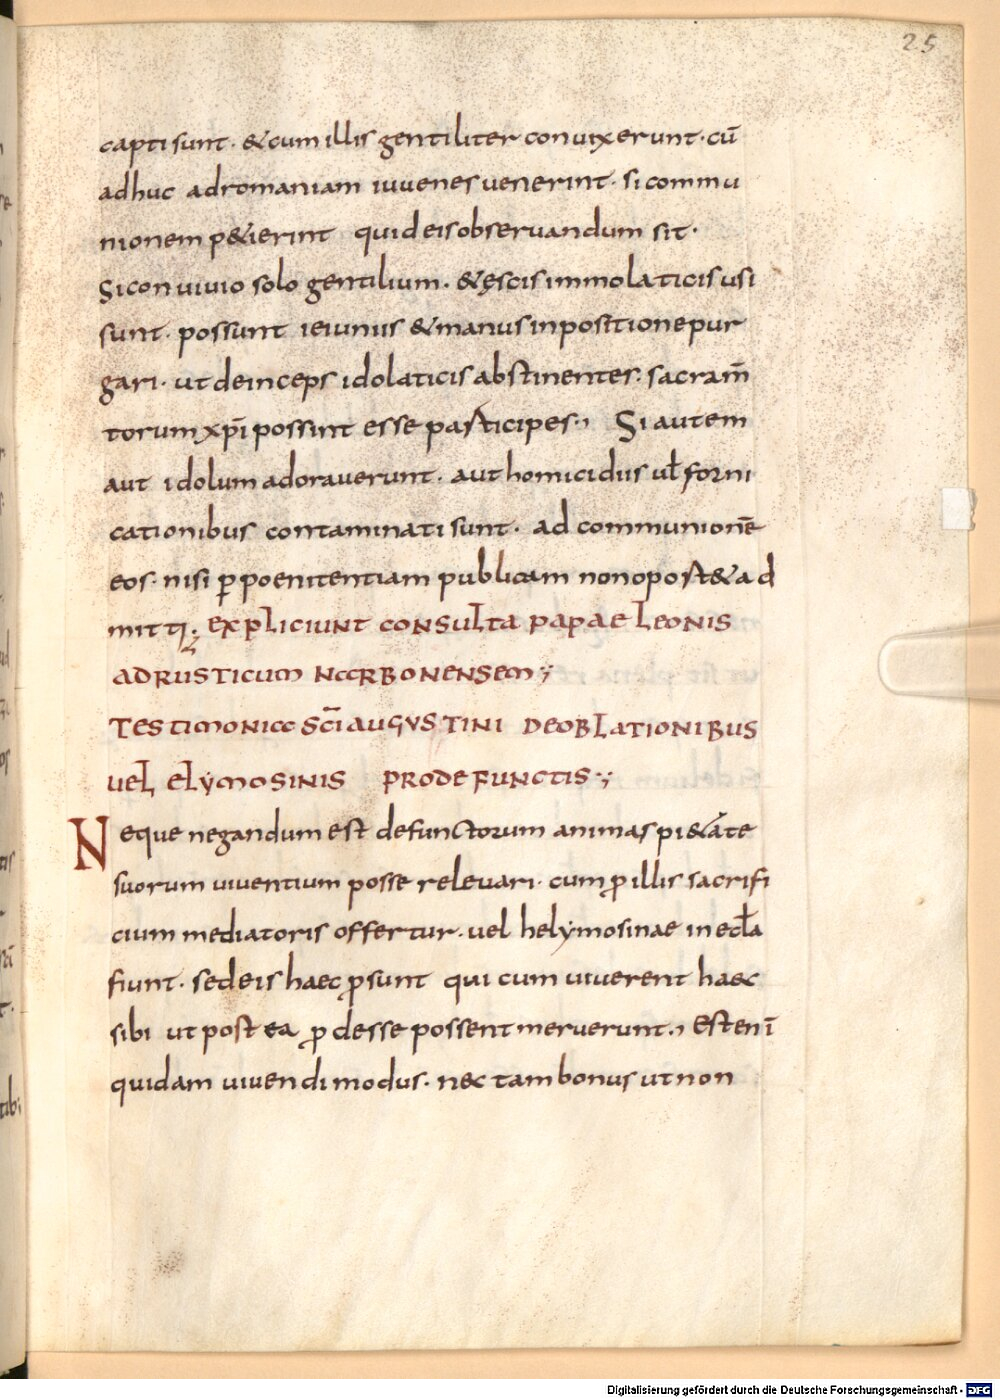 25
capti sunt· &cum illis gentiliter conuixerunt· cū
adhuc adromaniam iuuenes uenerint· si commu
nionem p&ierint quid eis obseruandum sit·
Si conuiuio solo gentilium· &ęscis immolaticis usi
sunt· possunt ieiuniis &manus inpositione pur
gari· ut deinceps idolaticis abstinentes· sacram̄
torum xp̄i possint esse participes·, Si autem
aut idolum adorauerunt· aut homicidiis ul̄ forni
cationibus contaminati sunt· ad communionē
eos· nisi ꝑ poenitentiam publicam non oport& ad
mitti·; explIciunt consulta papae leonis
ad rusticum narbonensem·;
testimonia sc̄i augustini de oblationibus
uel elymosinis pro defunctis·;
Neque negandum est defunctorum animas pi&ate
suorum uiuentium posse releuari· cum ꝓ illis sacrifi
cium mediatoris offertur· uel helymosinae in ecl̄a
fiunt· sed eis haec ꝓsunt qui cum uiuerent haec
sibi ut post ea ꝓdesse possent meruerunt·, Est enī
quidam uiuendi modus· nec tam bonus ut non
Digitalisierung gefördert durch die Deutsche Forschungsgemeinschaft - DFG